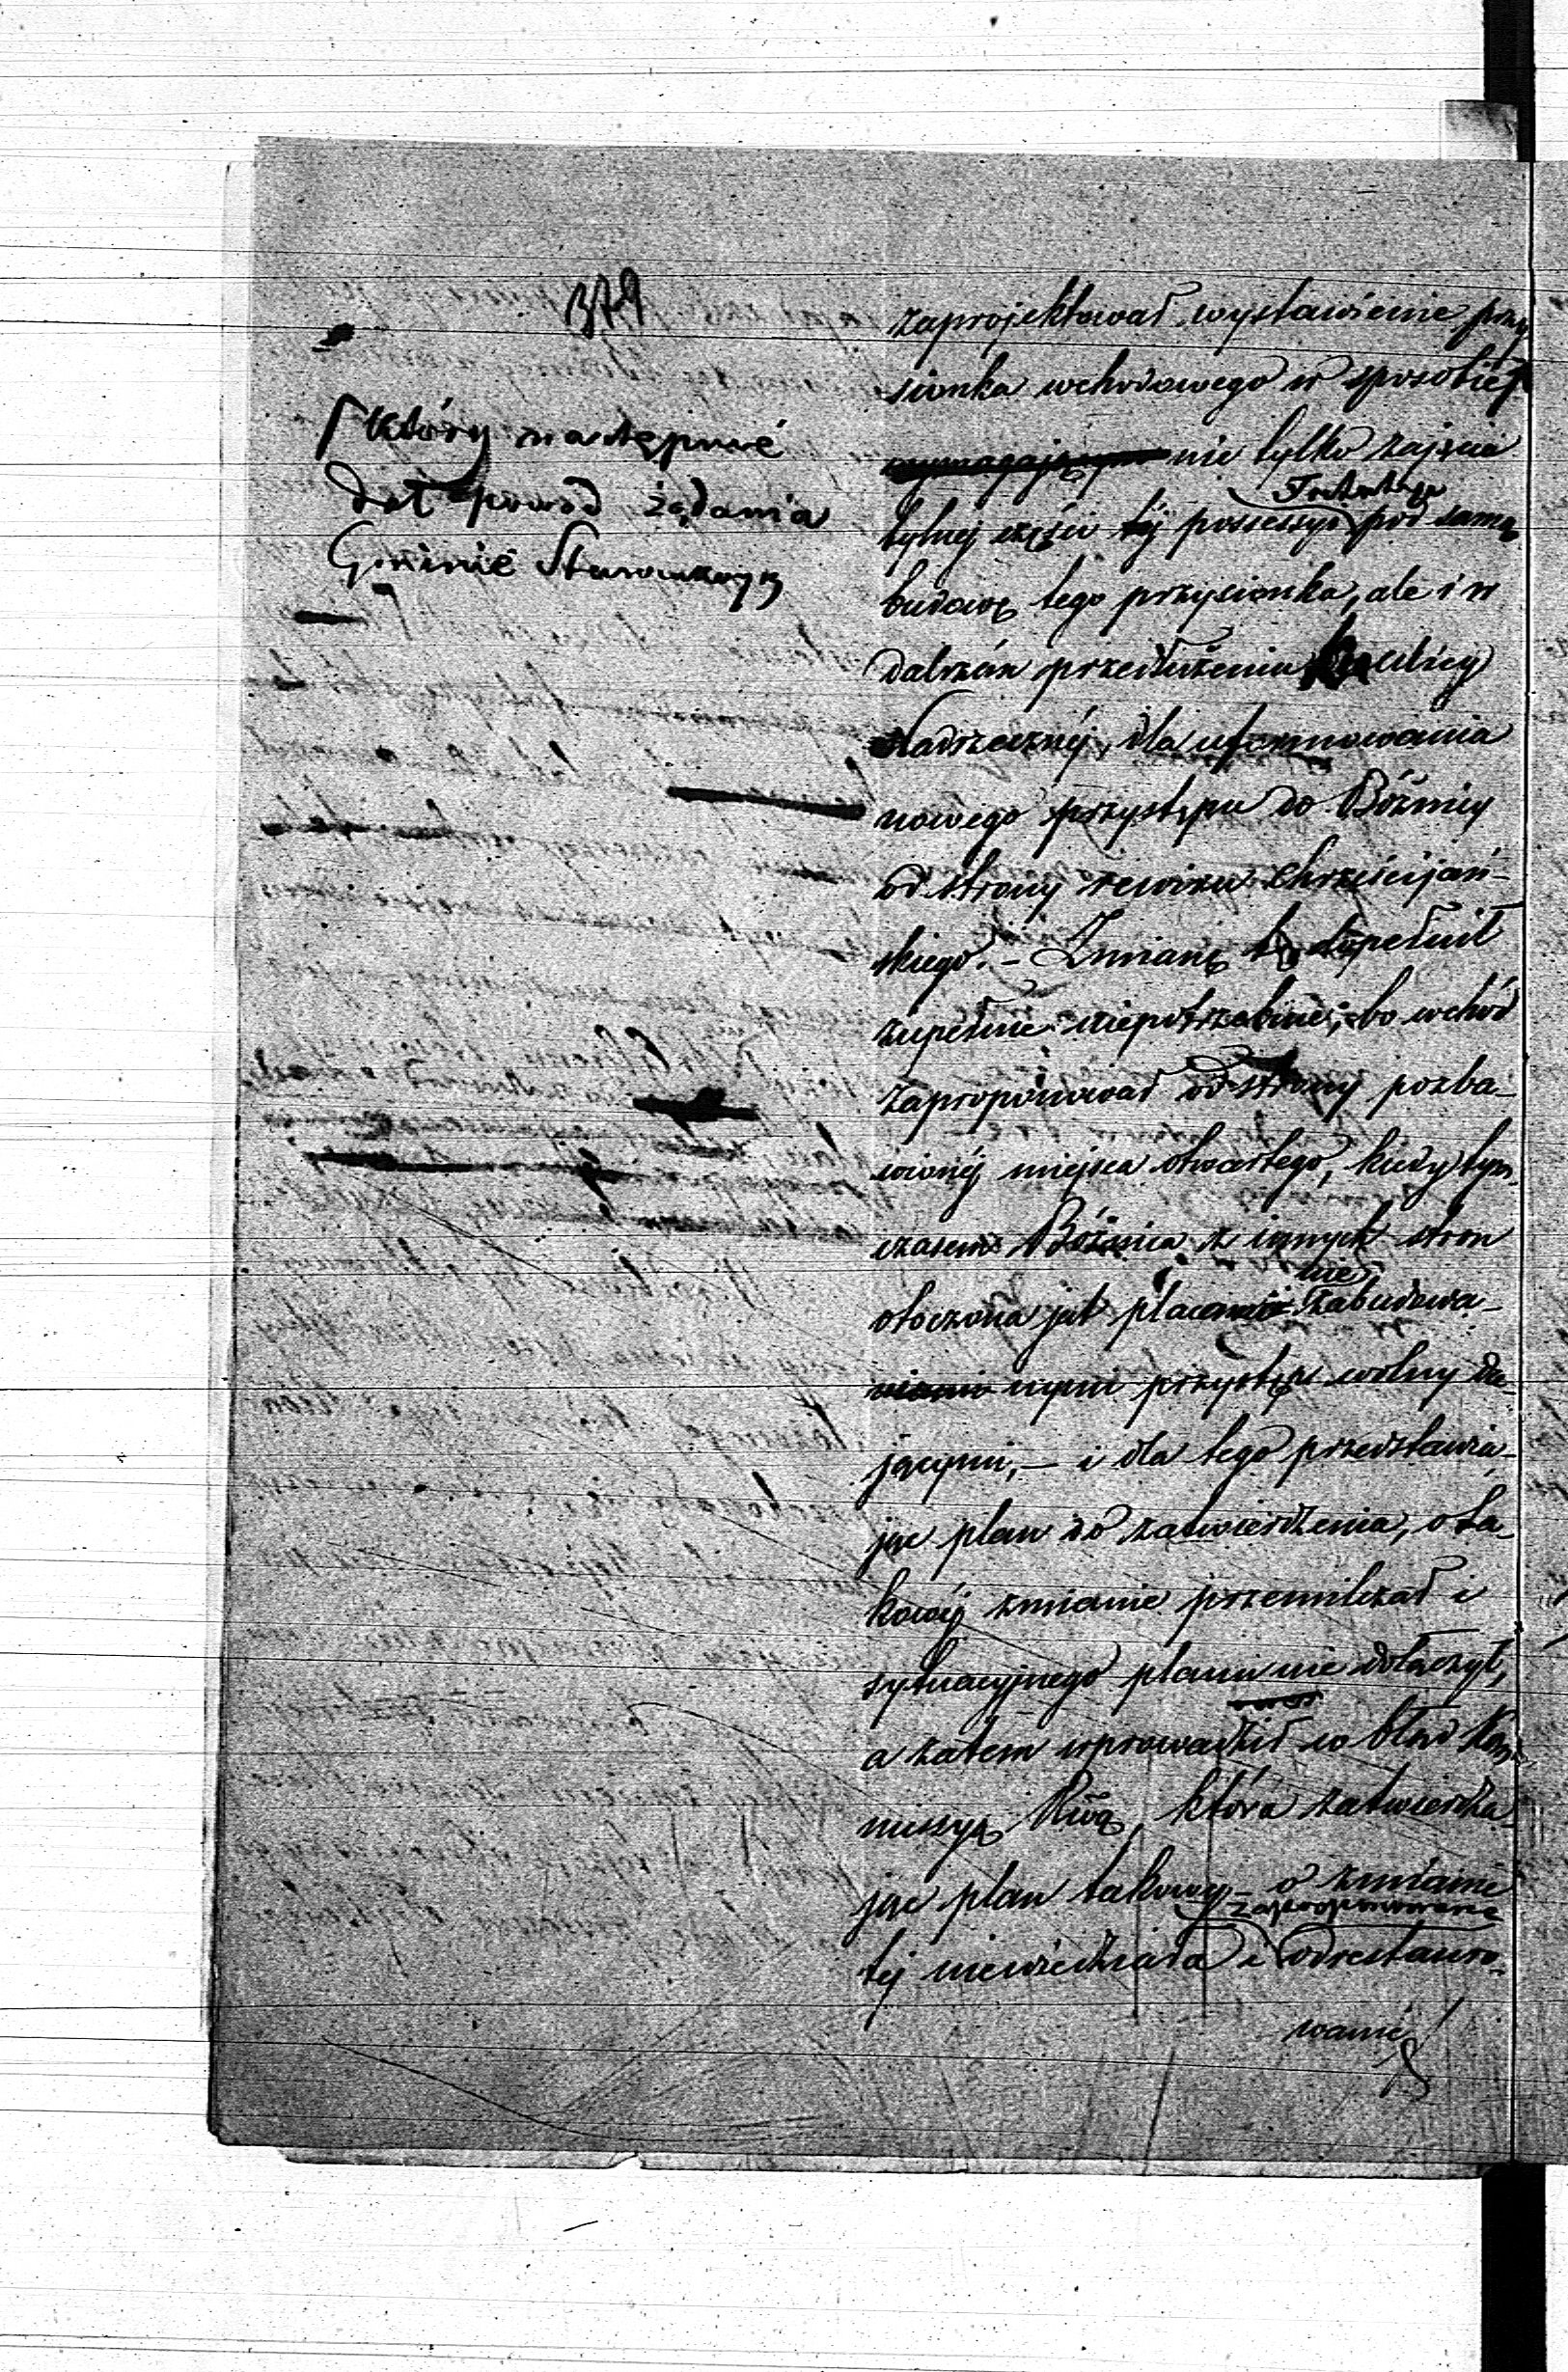 379
który następnie
dał powód żądania
Gminie Starozak
zaprojektował wystawienie przy
sionka wchodowego w sposobie
wymagającym nie tylko zajęcia
tylnej części tej possessyi pod samą
budowę tego przysionka, ale i w
dalszém przedłużeniu ulicy
Nadrzecznéj, dla uformowania
nowego przystępu do Bóżnicy
od strony rewiru chrześcijań-
skiego. – Zmianę tę dopełnił
zupełnie niepotrzebnie, bo wchód
zaproponował od strony pozba-
wionéj miejsca otwartego, kiedy tym
czasem Bóżnica z innych stron
nie
otoczona jest placami zabudowa-
nymi przystęp wolny da-
jącymi, – i dla tego przedstawia-
jąc plan do zatwierdzenia, o ta-
kowéj zmianie przemilczał i
sytuacyjnego planu nie dołączył,
a zatem wprowadził w błąd Kom-
missyą Rwą, która zatwierdza-
jąc plan takowy – o zmianie
zaproponowane
tej niewiedziała i odrestauro-
wanie